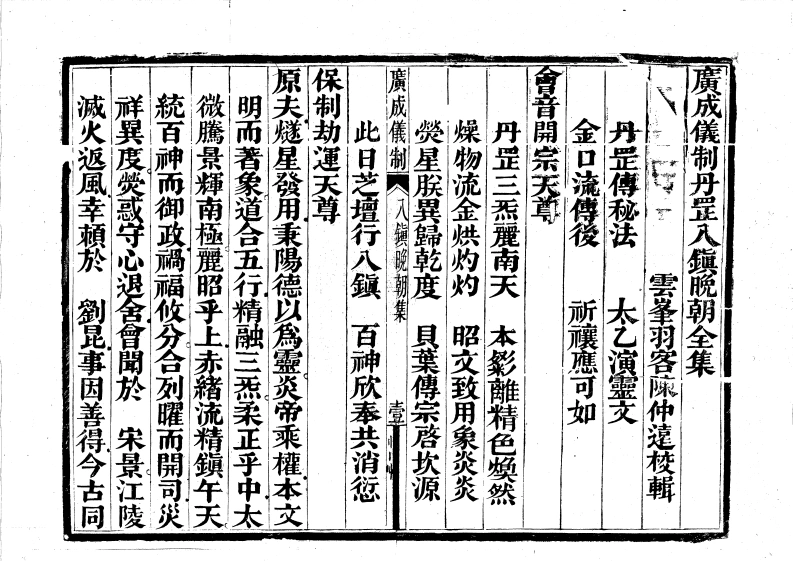 廣成儀制丹罡八鎮晚朝全集
雲峯羽客陳仲遠校輯
丹罡傳秘法 太乙演靈文
金口流傳後 祈禳應可如
會音開宗天尊
丹罡三炁麗南天 本影離精色煥然
燥物流金烘灼灼 昭文致用象炎炎
熒星朕異歸乾度 貝葉傳宗啓坎源
廣成儀制 八鎮晚朝集 壹
此日芝壇行八鎮 百神欣奉共消愆
保制劫運天尊
原夫燧星發用秉陽德以爲靈炎帝乘權本文
明而著象道合五行精融三炁柔正乎中太
微騰景輝南極麗昭乎上赤緒流精鎮午天
統百神而御政禍福攸分合列曜而開司災
祥異度熒惑守心退舍曾聞於 宋景江陵
滅火返風幸賴於 劉昆事因善得今古同